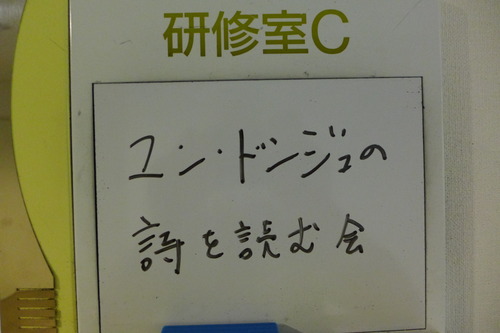 研修室C
ユン・ドンジュの
詩を読む会